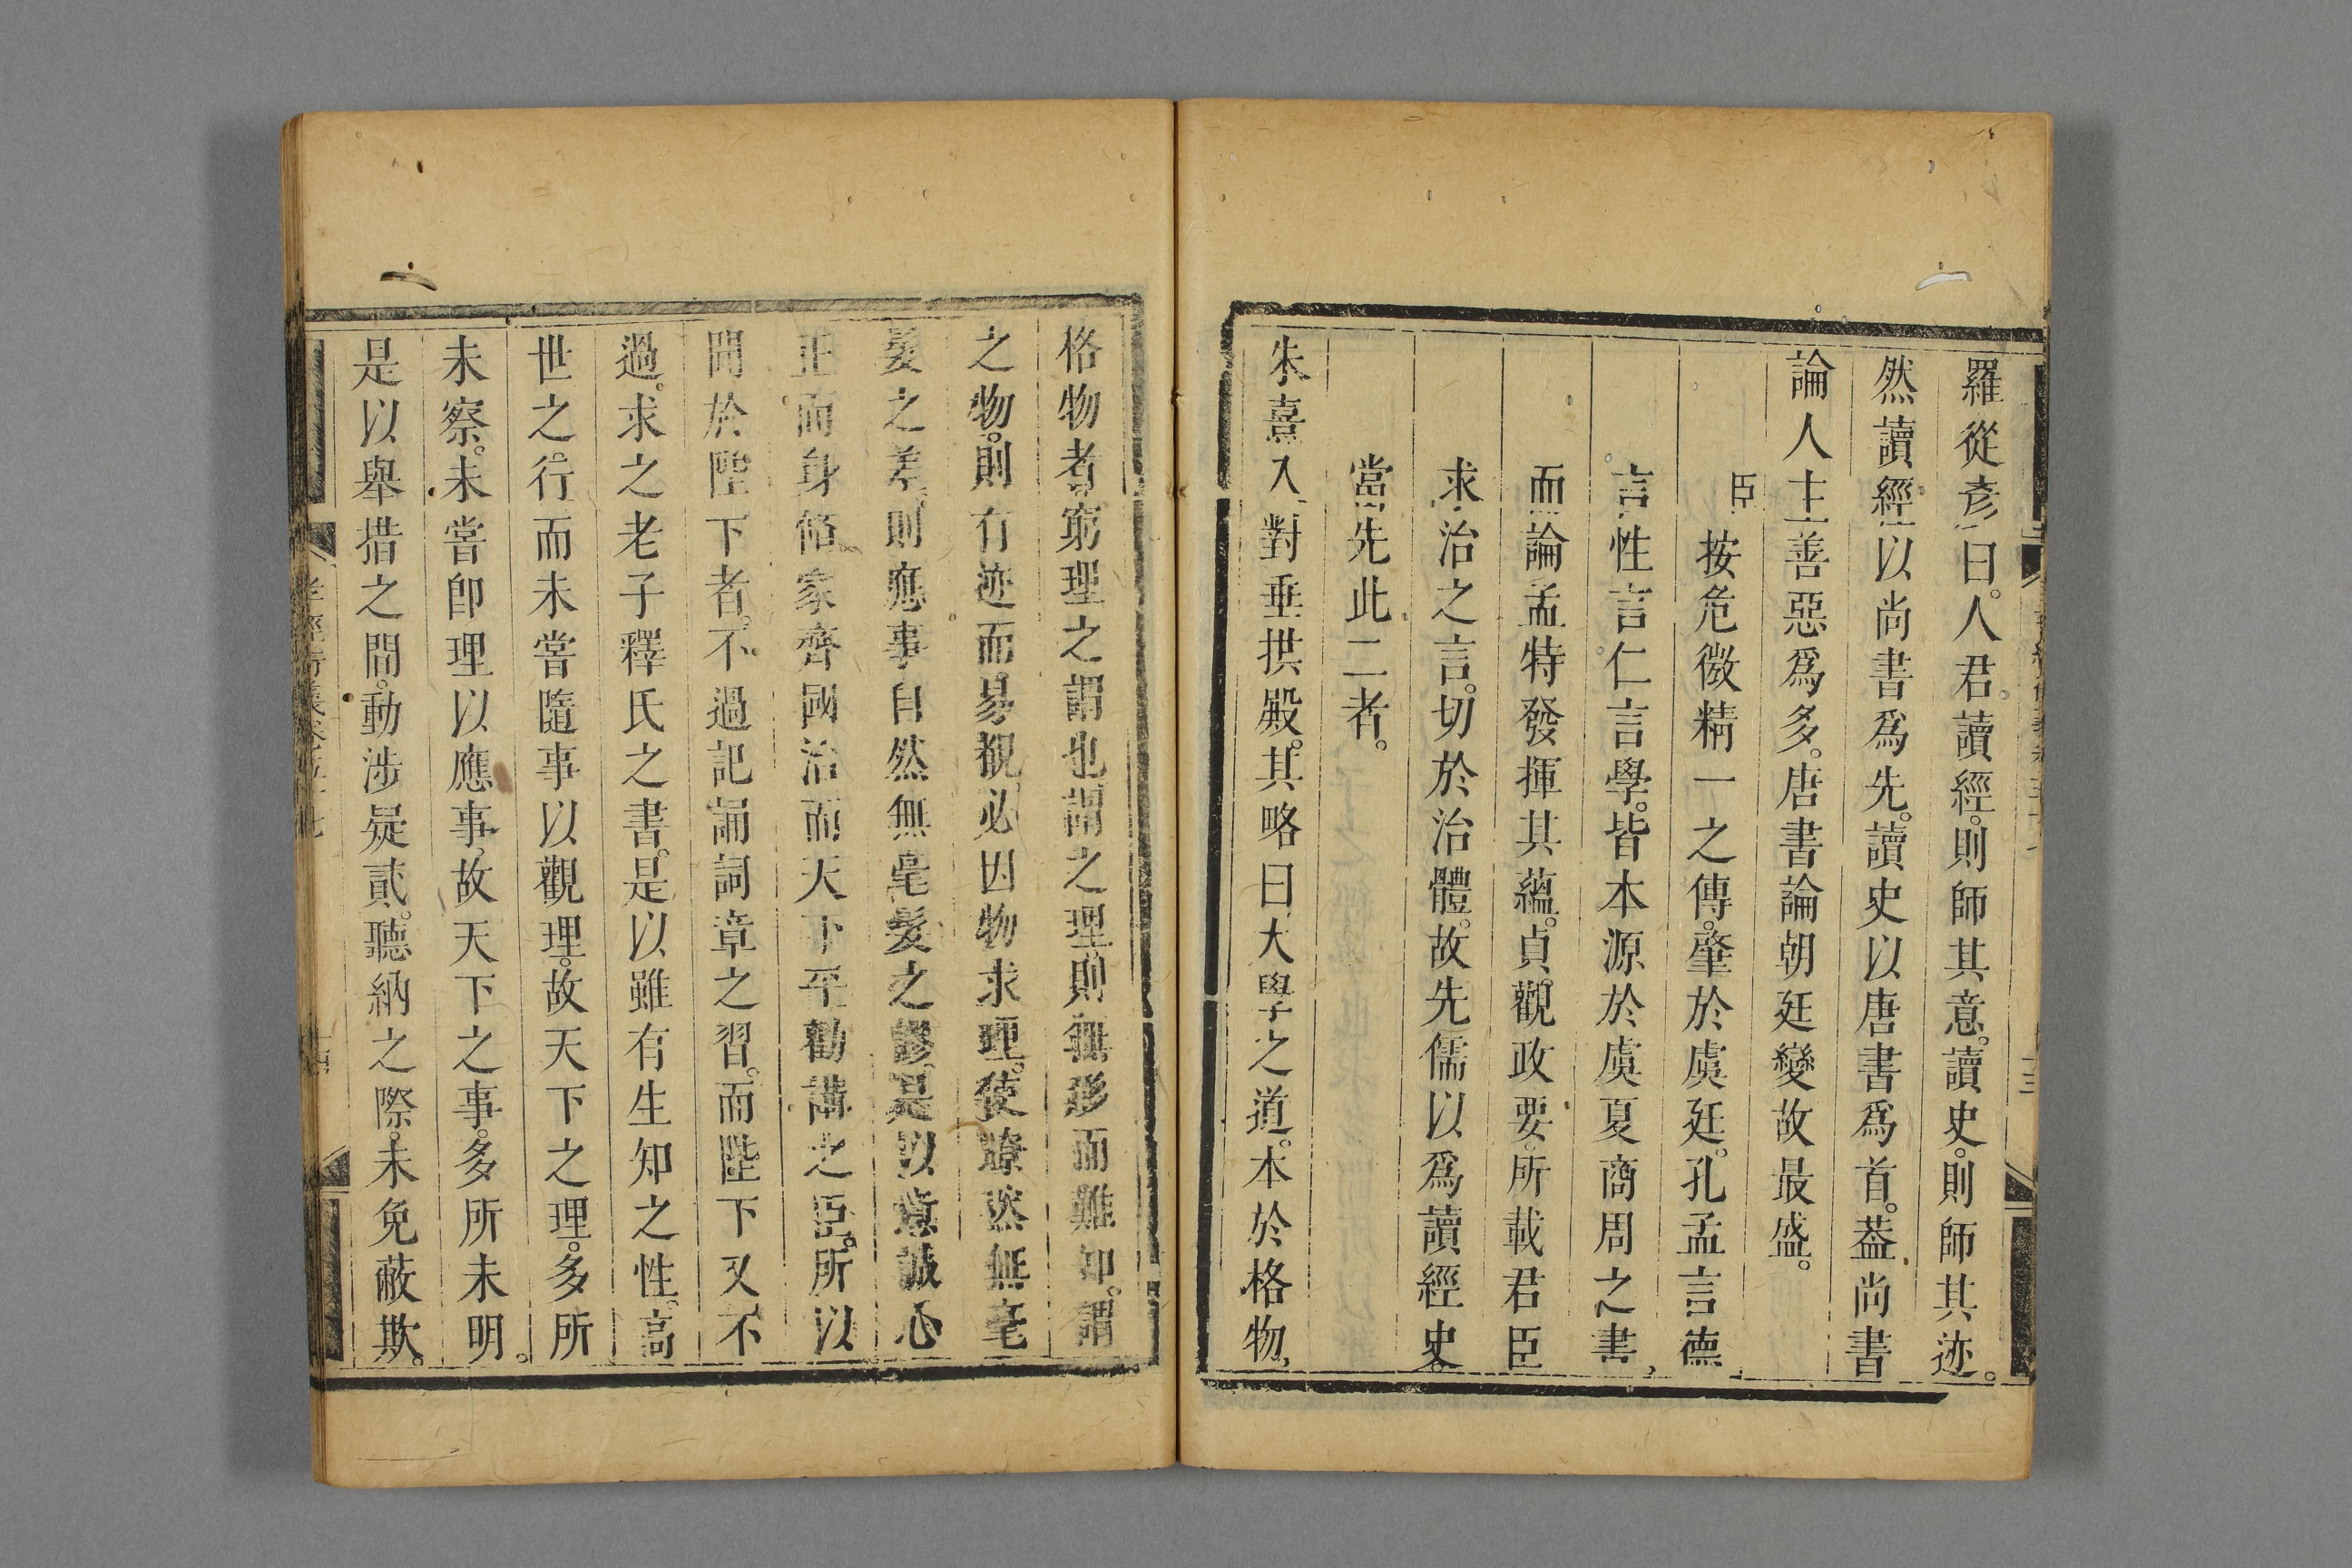 羅從彥曰。人君。讀經。則師其意。讀史。則師其迹。
然讀經以尚書爲先。讀史以唐書爲首。葢尚書
論人主善惡爲多。唐書論朝廷變故最盛。
臣按危微精一之傳。肇於虞廷。孔孟言德
言性言仁言學。皆本源於虞夏商周之書,
而論孟特發揮其蘊。貞觀政要。所載君臣
求治之言。切於治體。故先儒以爲讀經史。
當先此二者。
朱熹入對垂拱殿。其略曰大學之道。本於格物,
格物者。窮理之謂也謂之理。則無形而難知。謂
之物。則有迹而易覩必因物求理。使瞭然無毫
髮之差。則應事自然無毫髮之謬。是以意誠心
正而身脩家齊國治而天下平勸講之臣。所以
聞於陛下者。不過記誦詞章之習。而陛下又不
過。求之老子釋氏之書。是以雖有生知之性。高
世之行。而未嘗隨事以觀理。故天下之理。多所
未察。未嘗卽理以應事。故天下之事。多所未明。
是以舉措之間。動涉疑貳。聽納之際。未免蔽欺。